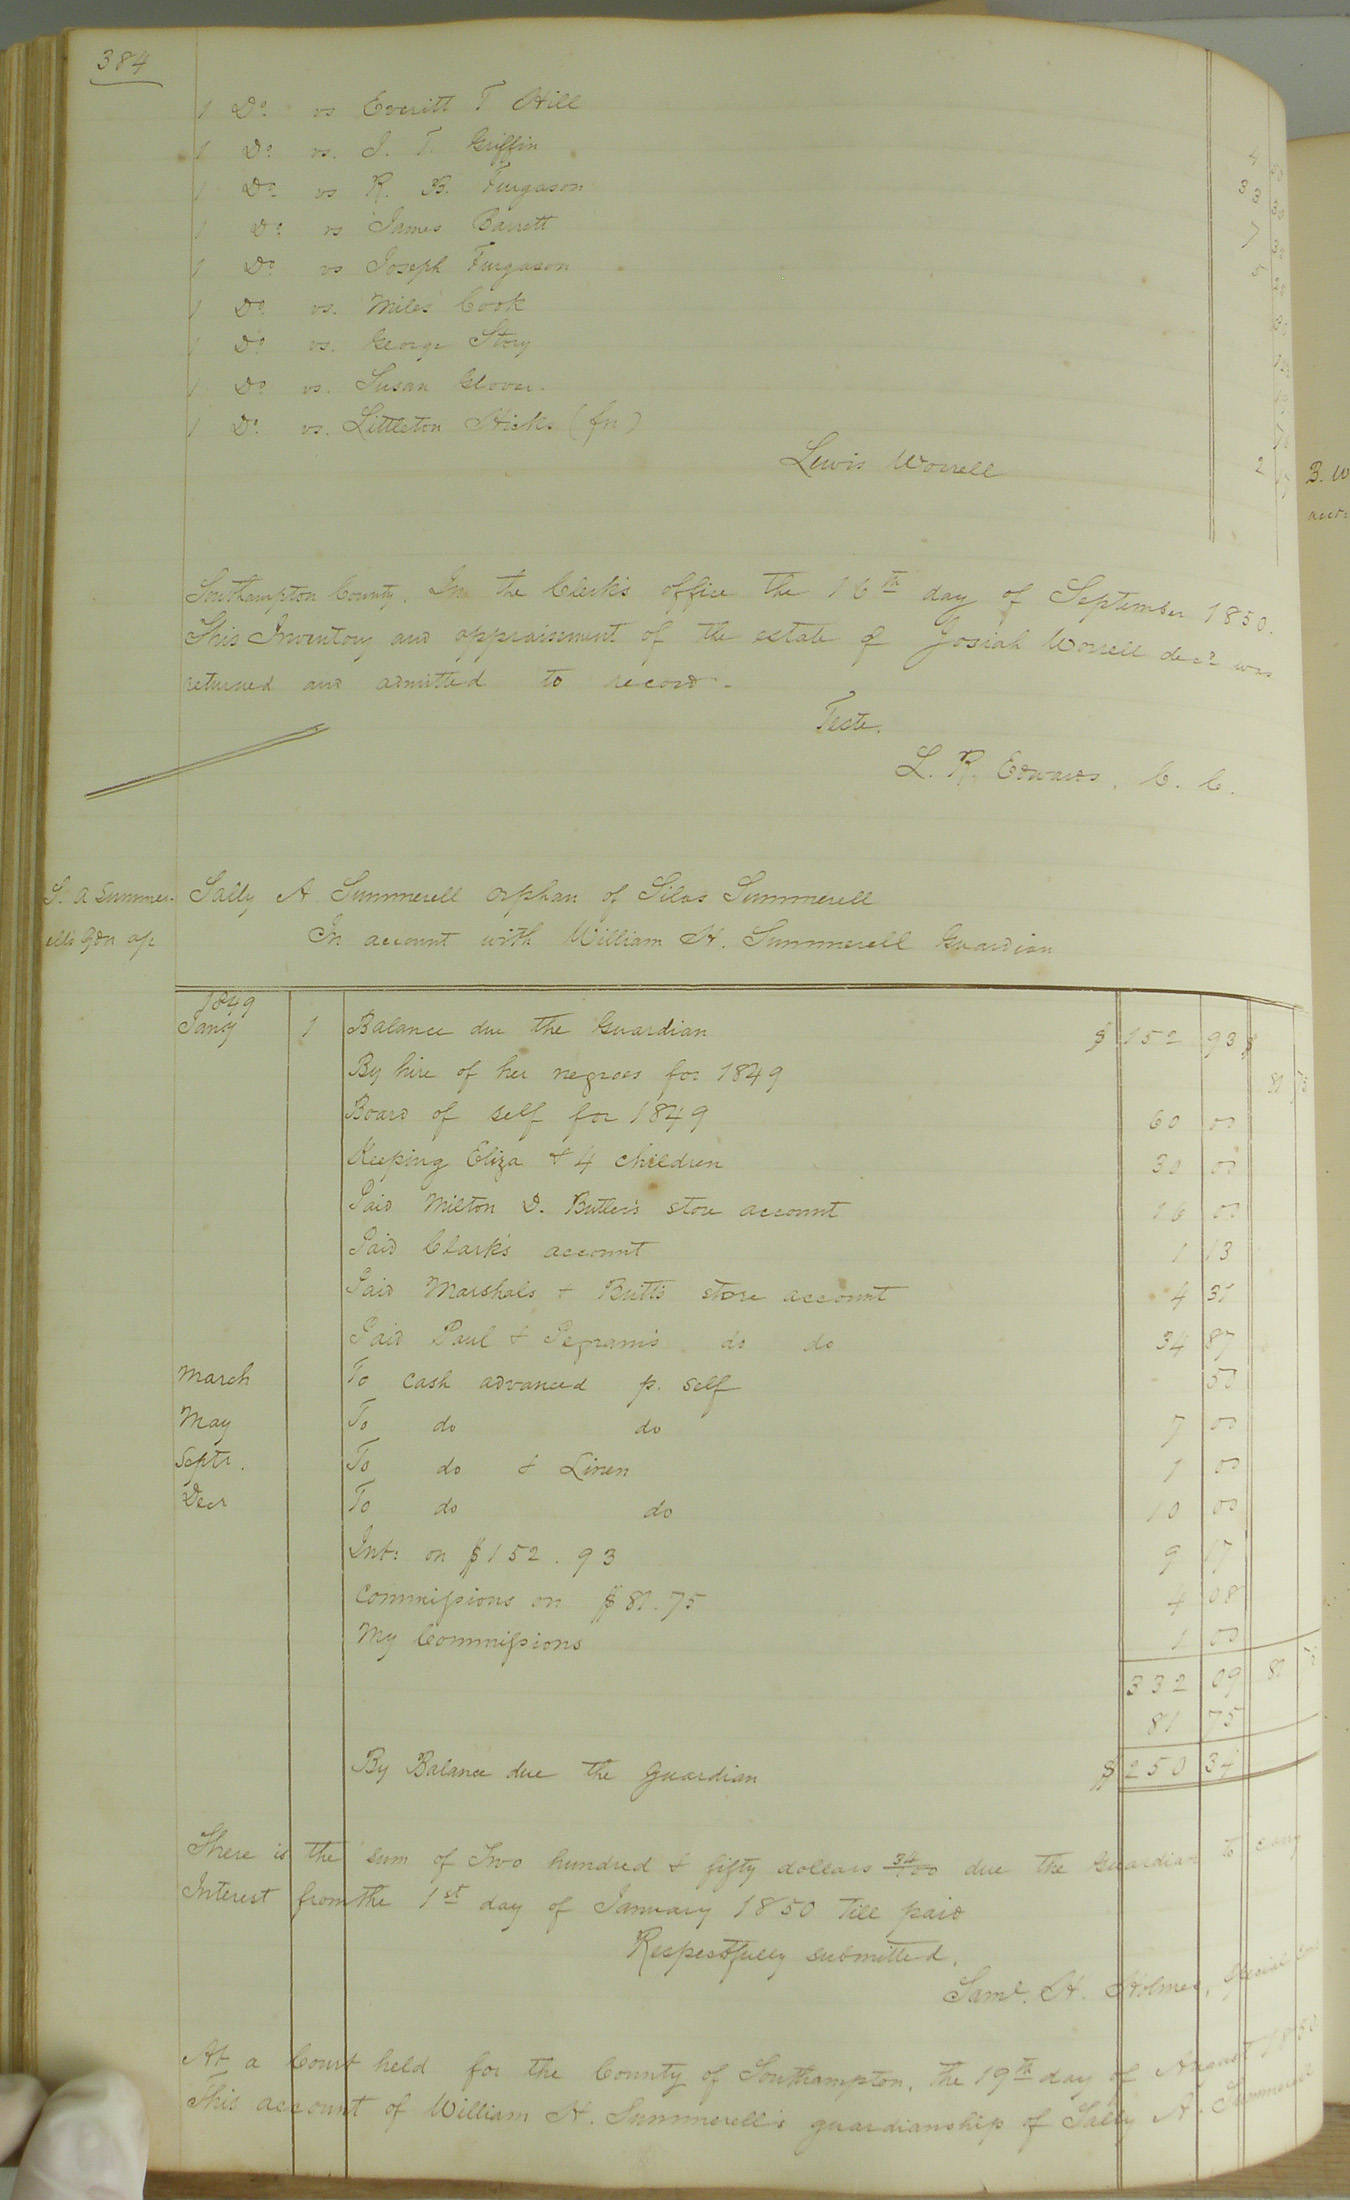 384
1 Do vs Everitt T Hill 4 50
1 Do vs. J. T. Griffin 33 30
1 Do vs R. B. Furgason 7
1 Do vs James Barrett 5
1 Do vs Joseph Furgason
1 Do vs. Miles Cook
1 Do vs. George Story
1 Do vs. Susan Glover.
1 Do. vs. Littleton Hicks (fn) 2
Lewis Worrell
B. W
Southampton County. In the Clerk's office the 16th day of September 1850.
This Inventory and appraisement of the estate of Josiah Worrell decd was
returned and admitted to record.
Teste,
L. R. Edwards, C. C.
S. A Summer-
ells Gdn ap
Sally A Summerell orphan of Silas Summerell
In account with William H. Summerell Guardian
1849
Jany 1 Balance due the Guardian $ 152 93 $
By hire of her negroes for 1849 81 75
Board of self for 1849 60 00
Keeping Eliza & 4 children 30 00
Paid Milton D. Butler's store account 16 00
Paid Clark's account 1 13
Paid Marshals & Butts store account 4 31
Paid Paul & Pegram's do do 34 87
March To cash advanced p. self 50
May To do do 7 00
Septr. To do & Linen 1 00
Decr To do do 10 00
Int: on $152.93 9 17
Commissions on $81.75 4 08
My Commissions 1 00
332 09 81 75
81 75
By Balance due the Guardian $ 250 34
There is the sum of Two hundred & fifty dollars 34/100 due the Guardian to carry
Interest from the 1st day of January 1850 till paid
Respectfully submitted,
Saml. H. Holmes, Special Com
At a Court held for the County of Southampton, the 19th day of August 1850
This account of William H. Summerell's guardianship of Sally A. Summerell